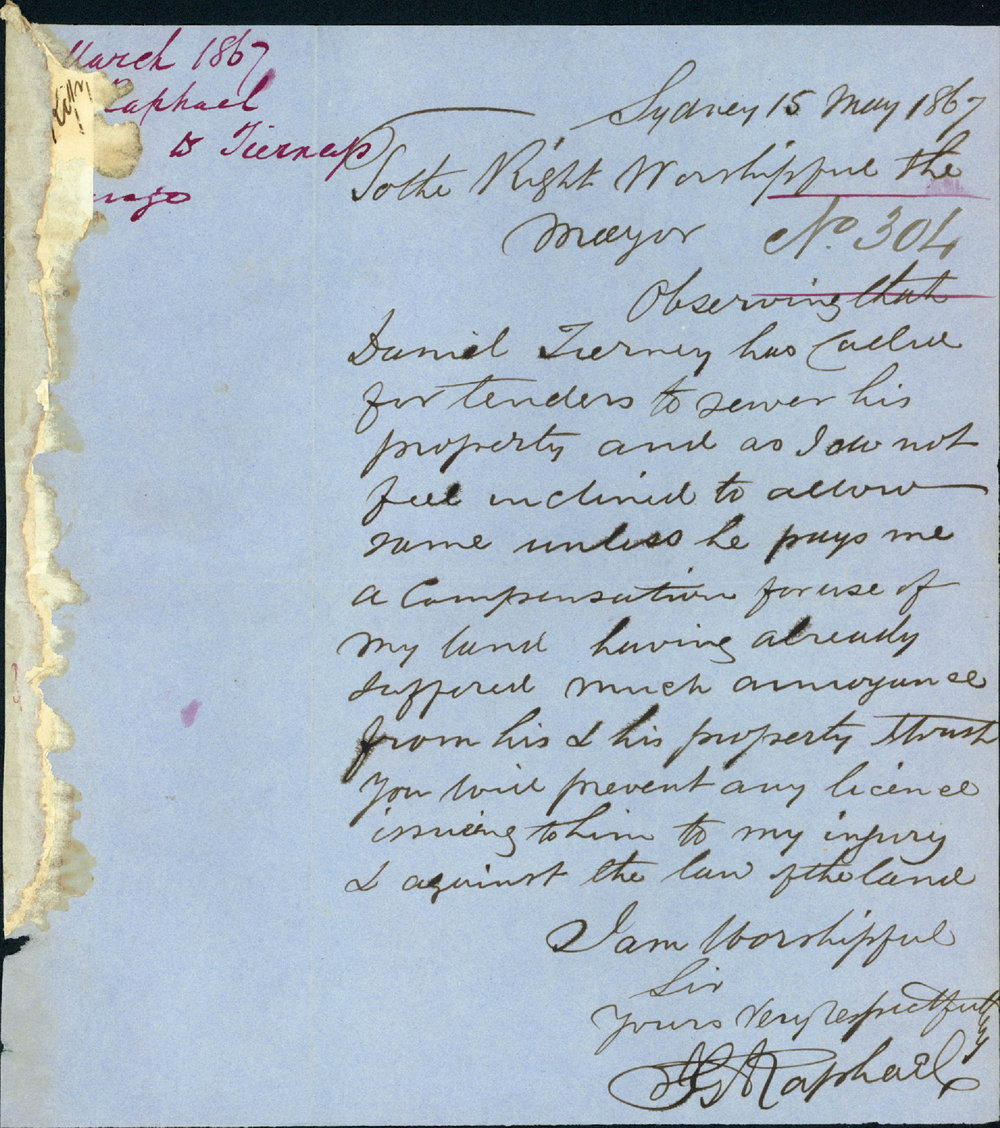 March 1867
Raphael
to Tierney
Sydney 15 May 1867
To the Right Worshipful the
Mayor
No. 304
Observing that
Daniel Tierney has Called
for tenders to sewer his
property and as I do not
feel inclined to allow
same unless he pays me
a Compensation for use of
my land having already
suffered much annoyance
from his & his property I trust
you will prevent any licence
issuing to him to my injury
& against the law of the land
I am Worshipful
Sir
Yours Very respectfully
J G Raphael